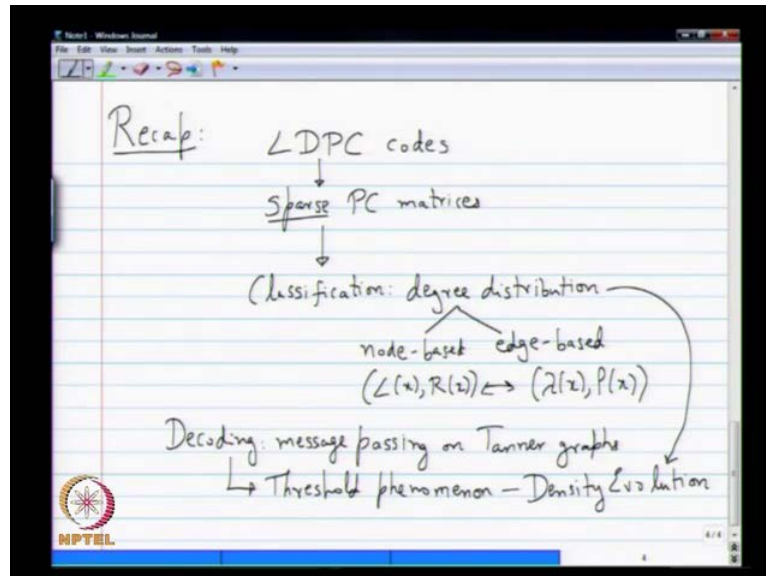 Note1 - Windows Journal
File Edit View Insert Actions Tools Help
Recap:
LDPC codes
Sparse PC matrices
Classification: degree distribution
node-based edge-based
(L(x), R(x)) ↔ (λ(x), ρ(x))
Decoding: message passing on Tanner graphs
Threshold phenomenon - Density Evolution
NPTEL
4/4
4